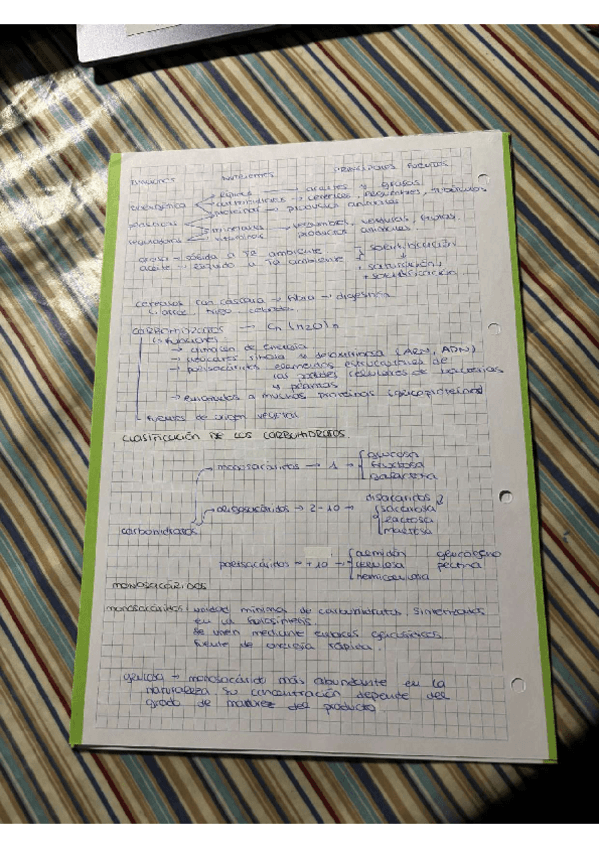 FUNCIONES NUTRIENTES PRINCIPALES FUENTES
energética lípidos → aceites y grasas
carbohidratos → cereales, legumbres, tubérculos
proteínas → productos animales
plásticas
reguladoras minerales → legumbres, verduras, frutas,
vitaminas productos animales
grasa → sólida a Tª ambiente
aceite → líquido a Tª ambiente
saturación
cereales con cáscara → fibra → digestión
arroz trigo
CARBOHIDRATOS → Cn (H2O)n
funciones
→ almacén de energía
→ azúcares ribosa y desoxirribosa (ARN, ADN)
→ polisacáridos elementos estructurales de
las paredes celulares de bacterias
y plantas
→ enlazados a muchas proteínas (glicoproteínas)
- fuentes de origen vegetal
CLASIFICACIÓN DE LOS CARBOHIDRATOS.
monosacáridos → 1 → glucosa
fructosa
galactosa
carbohidratos
oligosacáridos → 2-10 → disacáridos
sacarosa
lactosa
maltosa
polisacáridos → +10 → almidón glucógeno
celulosa pectina
hemicelulosa
MONOSACÁRIDOS
monosacáridos: unidad mínima de carbohidratos. Sintetizados
en la fotosíntesis
Se unen mediante enlaces glucosídicos.
fuente de energía rápida.
glucosa → monosacárido más abundante en la
naturaleza su concentración depende del
grado de madurez del producto